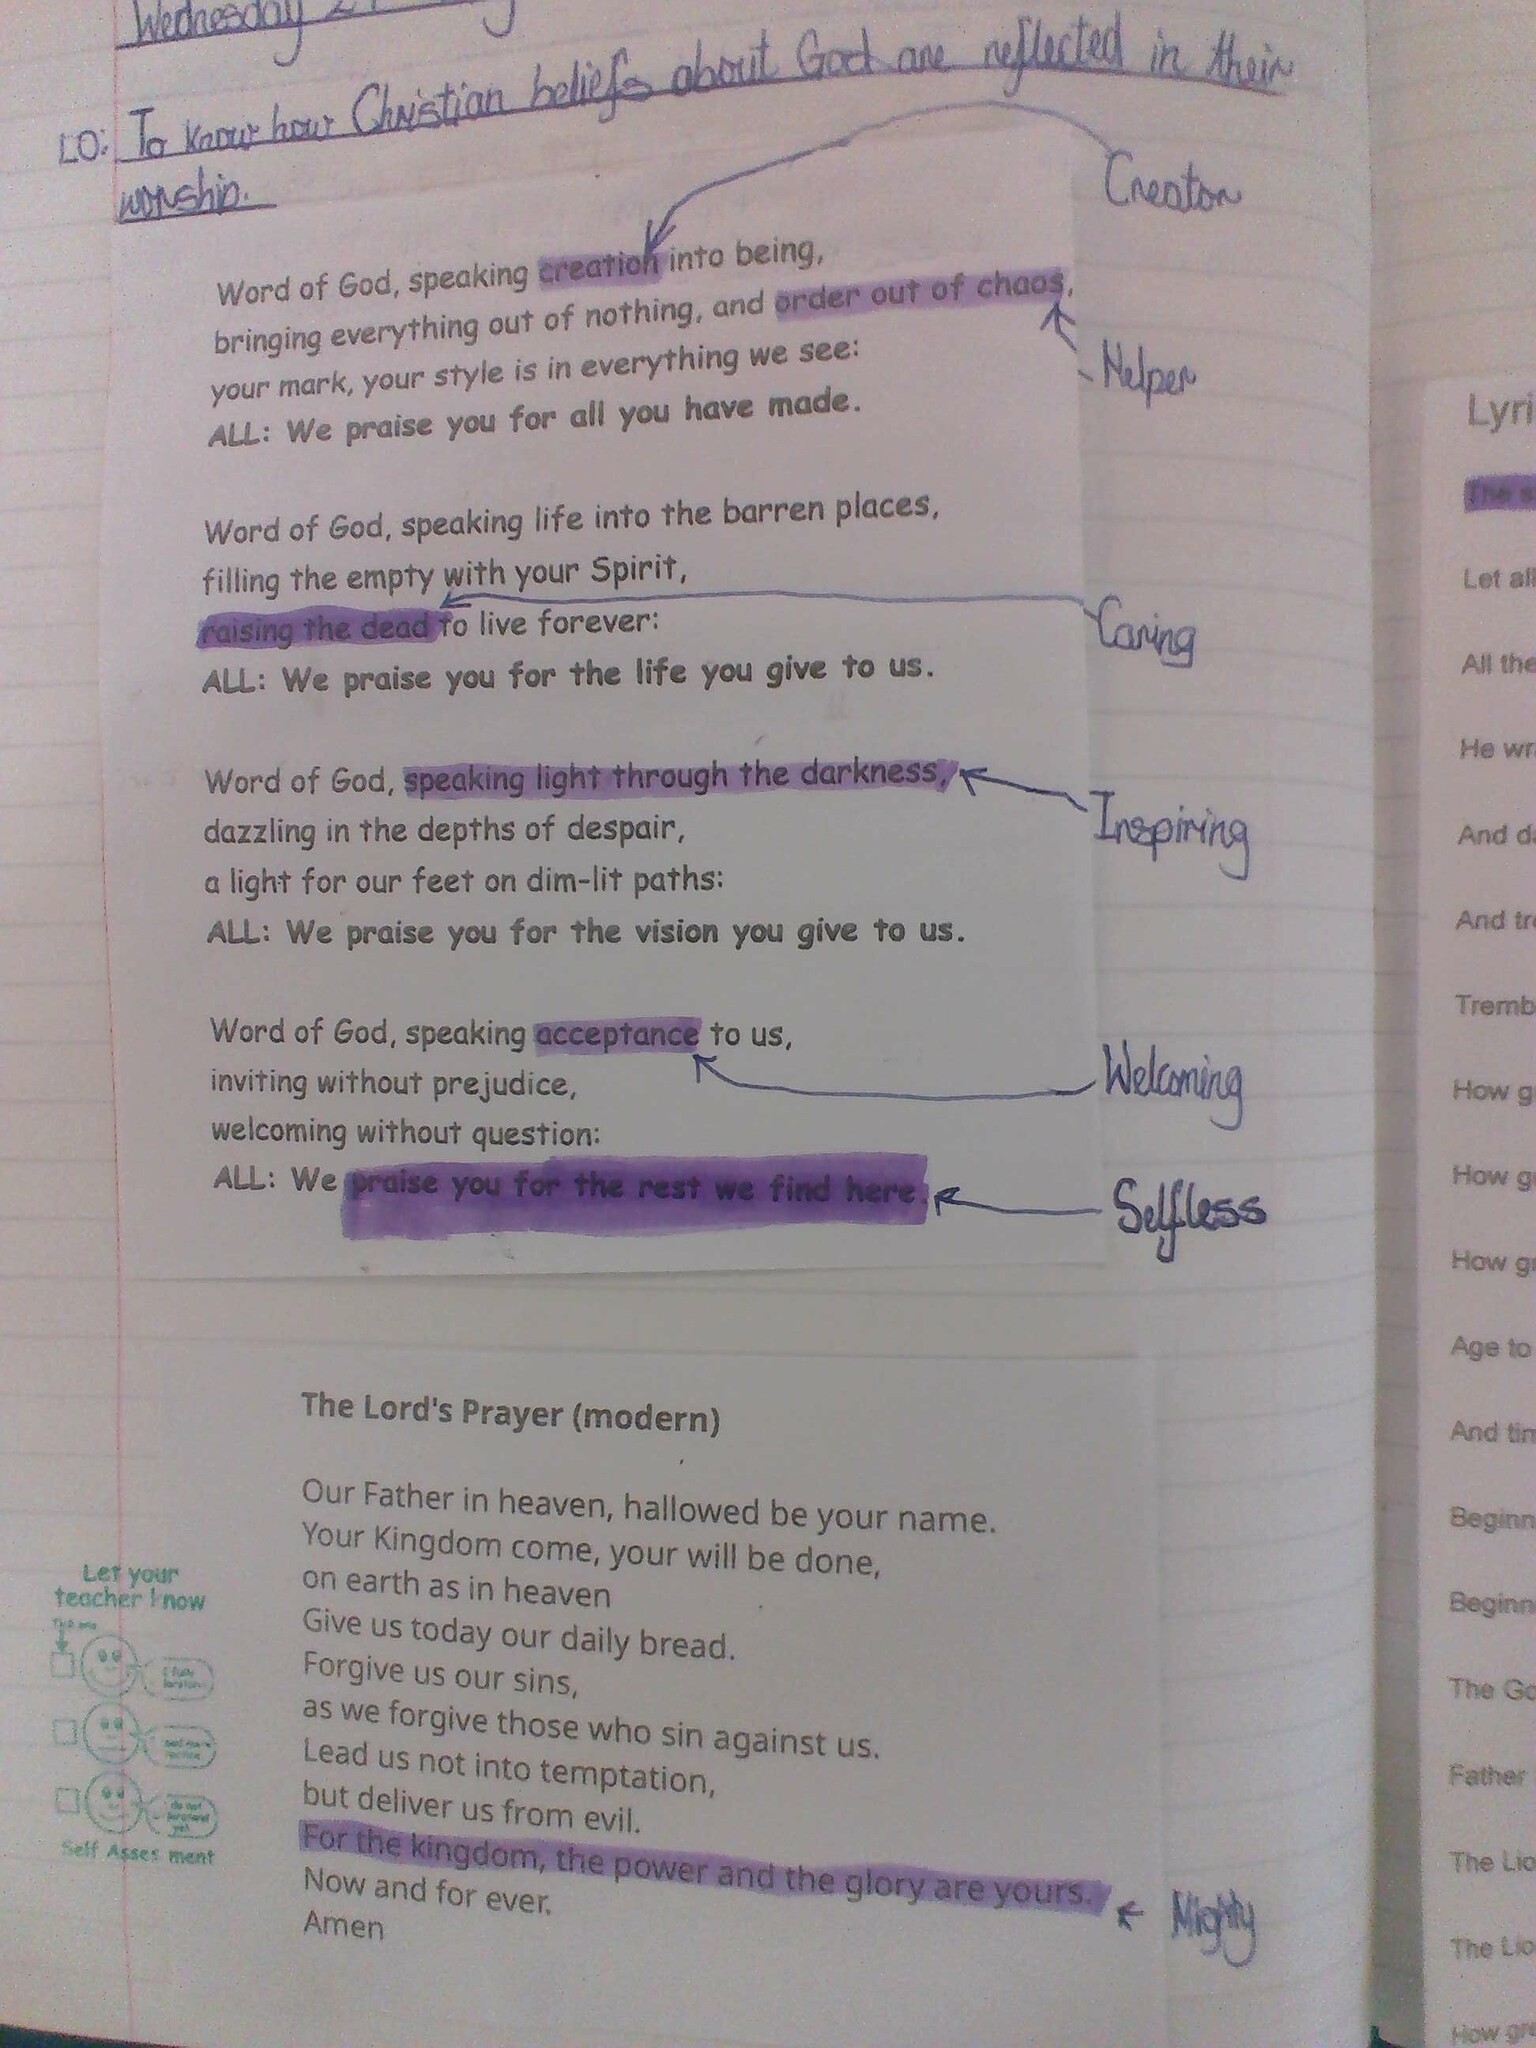 Wednesday
LO: To know how Christian beliefs about God are reflected in their
worship.
Creator
Word of God, speaking creation into being,
bringing everything out of nothing, and order out of chaos,
Helper
your mark, your style is in everything we see:
ALL: We praise you for all you have made.
Word of God, speaking life into the barren places,
filling the empty with your Spirit,
raising the dead to live forever:
Caring
ALL: We praise you for the life you give to us.
Word of God, speaking light through the darkness,
Inspiring
dazzling in the depths of despair,
a light for our feet on dim-lit paths:
ALL: We praise you for the vision you give to us.
Word of God, speaking acceptance to us,
Welcoming
inviting without prejudice,
welcoming without question:
ALL: We praise you for the rest we find here.
Selfless
The Lord's Prayer (modern)
Our Father in heaven, hallowed be your name.
Your Kingdom come, your will be done,
on earth as in heaven
Give us today our daily bread.
Forgive us our sins,
as we forgive those who sin against us.
Lead us not into temptation,
but deliver us from evil.
For the kingdom, the power and the glory are yours.
Mighty
Now and for ever.
Amen
Let your
teacher know
Self Asses ment
Lyri
Let all
All the
He wr
And da
And tre
Tremb
How g
How g
How gr
Age to
And tim
Beginn
Beginn
The Go
Father
The Lio
The Lio
How gre